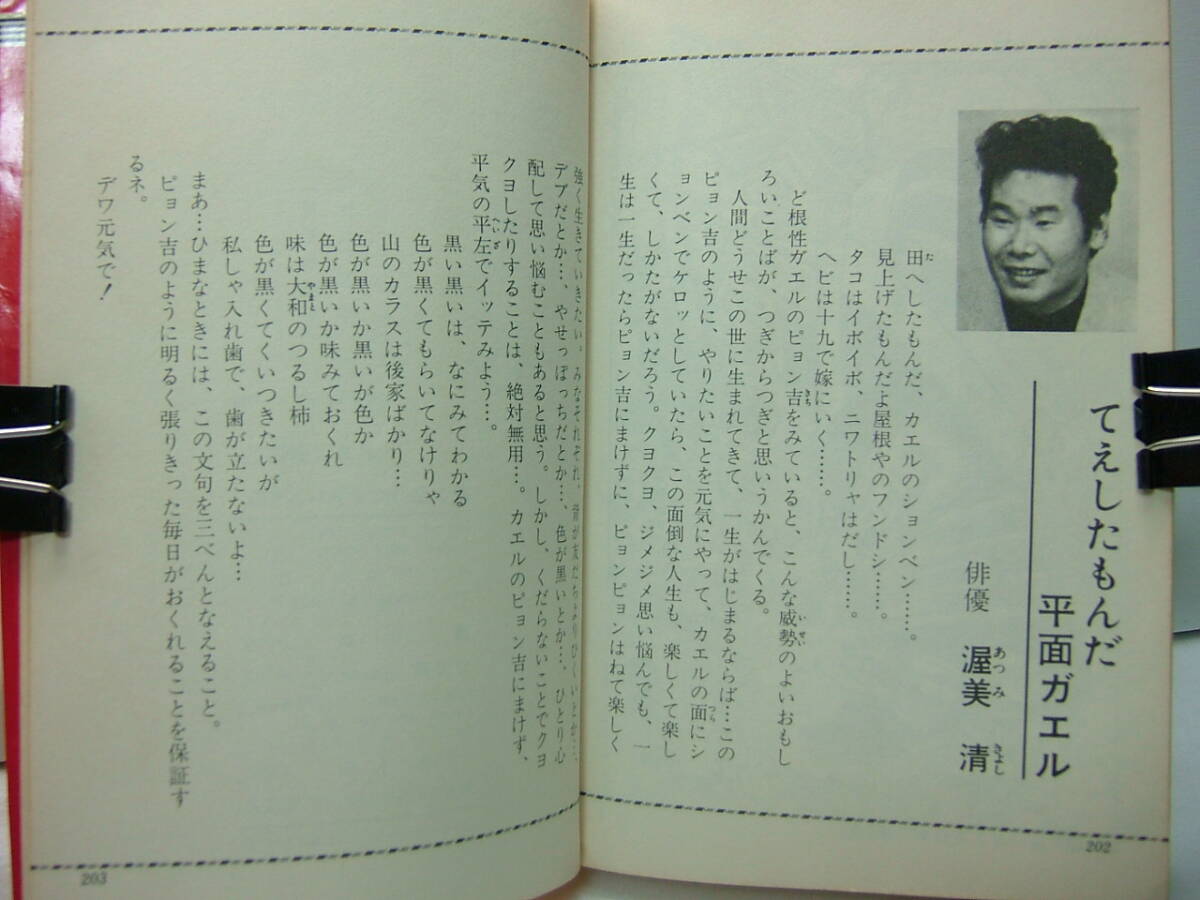 てえしたもんだ
平面ガエル
俳優　渥美　清
あつみ　きよし
田へしたもんだ、カエルのションベン……。
た
見上げたもんだよ屋根やのフンドシ……。
タコはイボイボ、ニワトリャはだし……。
ヘビは十九で嫁にいく……。
ど根性ガエルのピョン吉をみていると、こんな威勢のよいおもし
きち　いせい
ろいことばが、つぎからつぎと思いうかんでくる。
人間どうせこの世に生まれてきて、一生がはじまるならば…この
ピョン吉のように、やりたいことを元気にやって、カエルの面にシ
つら
ョンベンでケロッとしていたら、この面倒な人生も、楽しくて楽し
くて、しかたがないだろう。クヨクヨ、ジメジメ思い悩んでも、一
生は一生だったらピョン吉にまけずに、ピョンピョンはねて楽しく
202
強く生きていきたい。みなそれぞれ、背が友だちよりひくいとか…、
デブだとか…、やせっぽっちだとか…、色が黒いとか…、ひとり心
配して思い悩むこともあると思う。しかし、くだらないことでクヨ
クヨしたりすることは、絶対無用…。カエルのピョン吉にまけず、
平気の平左でイッテみよう…。
へいざ
黒い黒いは、なにみてわかる
色が黒くてもらいてなけりゃ
山のカラスは後家ばかり…
色が黒いか黒いが色か
色が黒いか味みておくれ
味は大和のつるし柿
やまと
色が黒くてくいつきたいが
私しゃ入れ歯で、歯が立たないよ…
まあ…ひまなときには、この文句を三べんとなえること。
ピョン吉のように明るく張りきった毎日がおくれることを保証す
るネ。
デワ元気で！
203